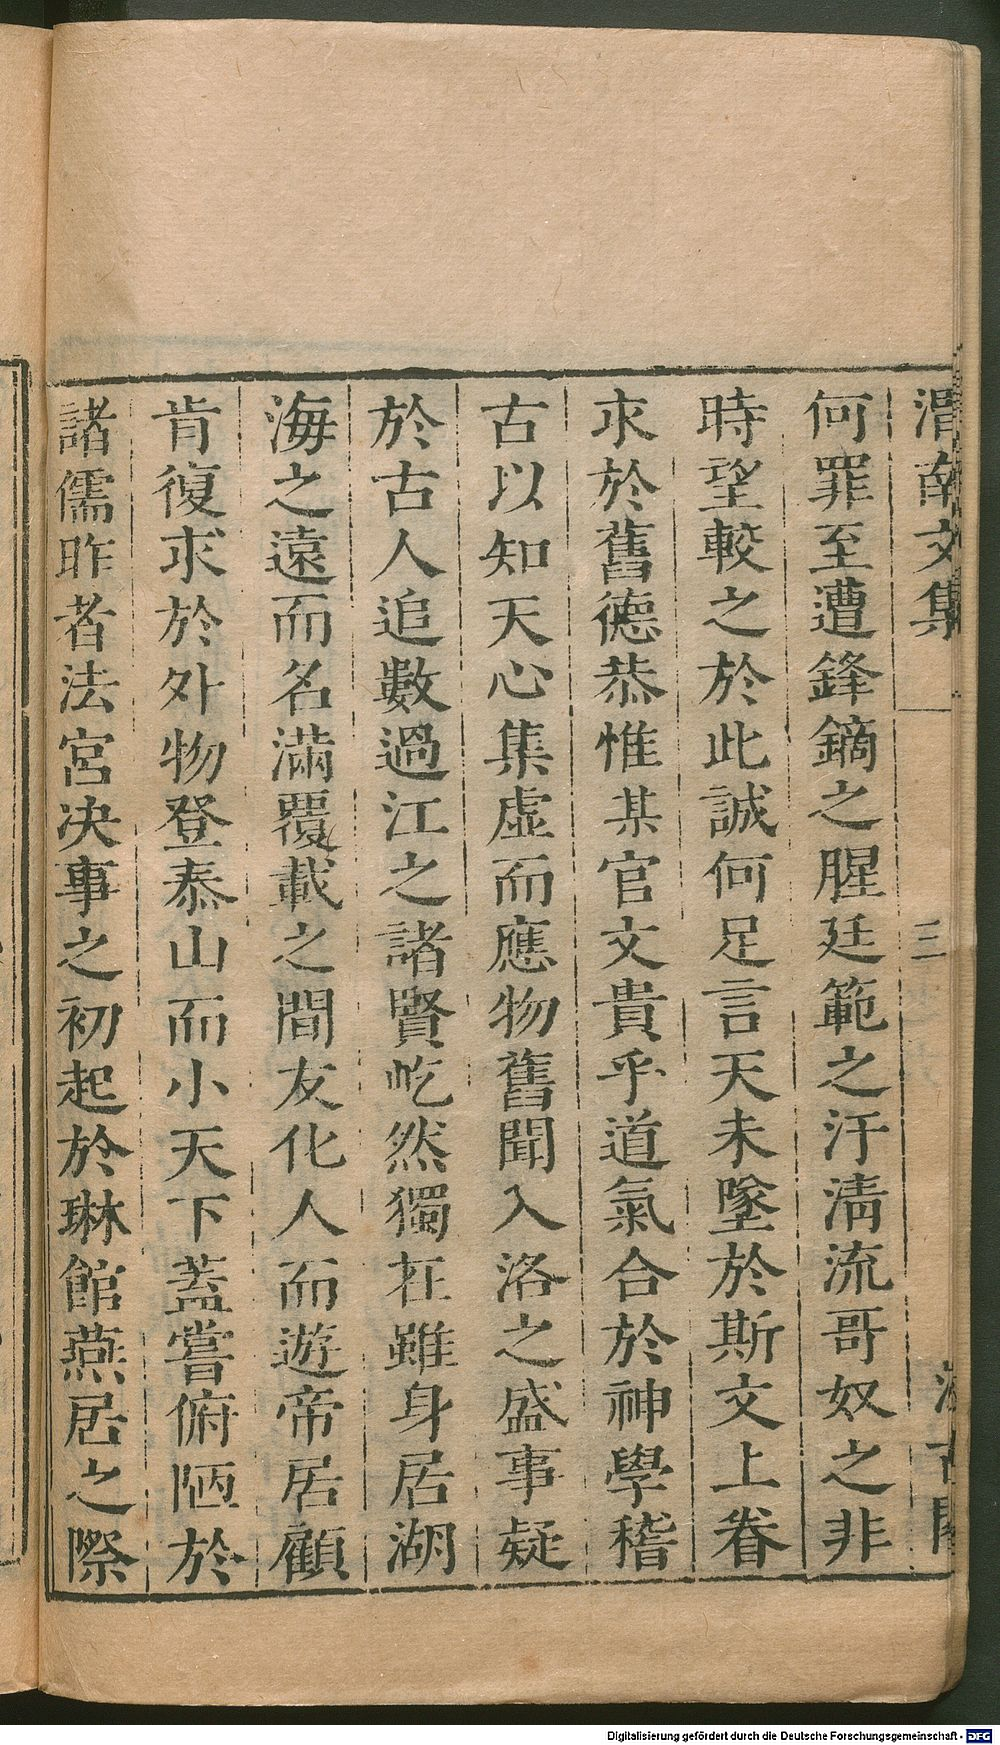 渭南文集
三
汲古閣
何罪至遭鋒鏑之腥廷範之汙淸流哥奴之非
時望較之於此誠何足言天未墜於斯文上眷
求於舊德恭惟某官文貴乎道氣合於神學稽
古以知天心集虛而應物舊聞入洛之盛事疑
於古人追數過江之諸賢屹然獨在雖身居湖
海之遠而名滿覆載之間友化人而遊帝居顧
肯復求於外物登泰山而小天下蓋嘗俯陋於
諸儒昨者法宮決事之初起於琳館燕居之際
Digitalisierung gefördert durch die Deutsche Forschungsgemeinschaft - DFG